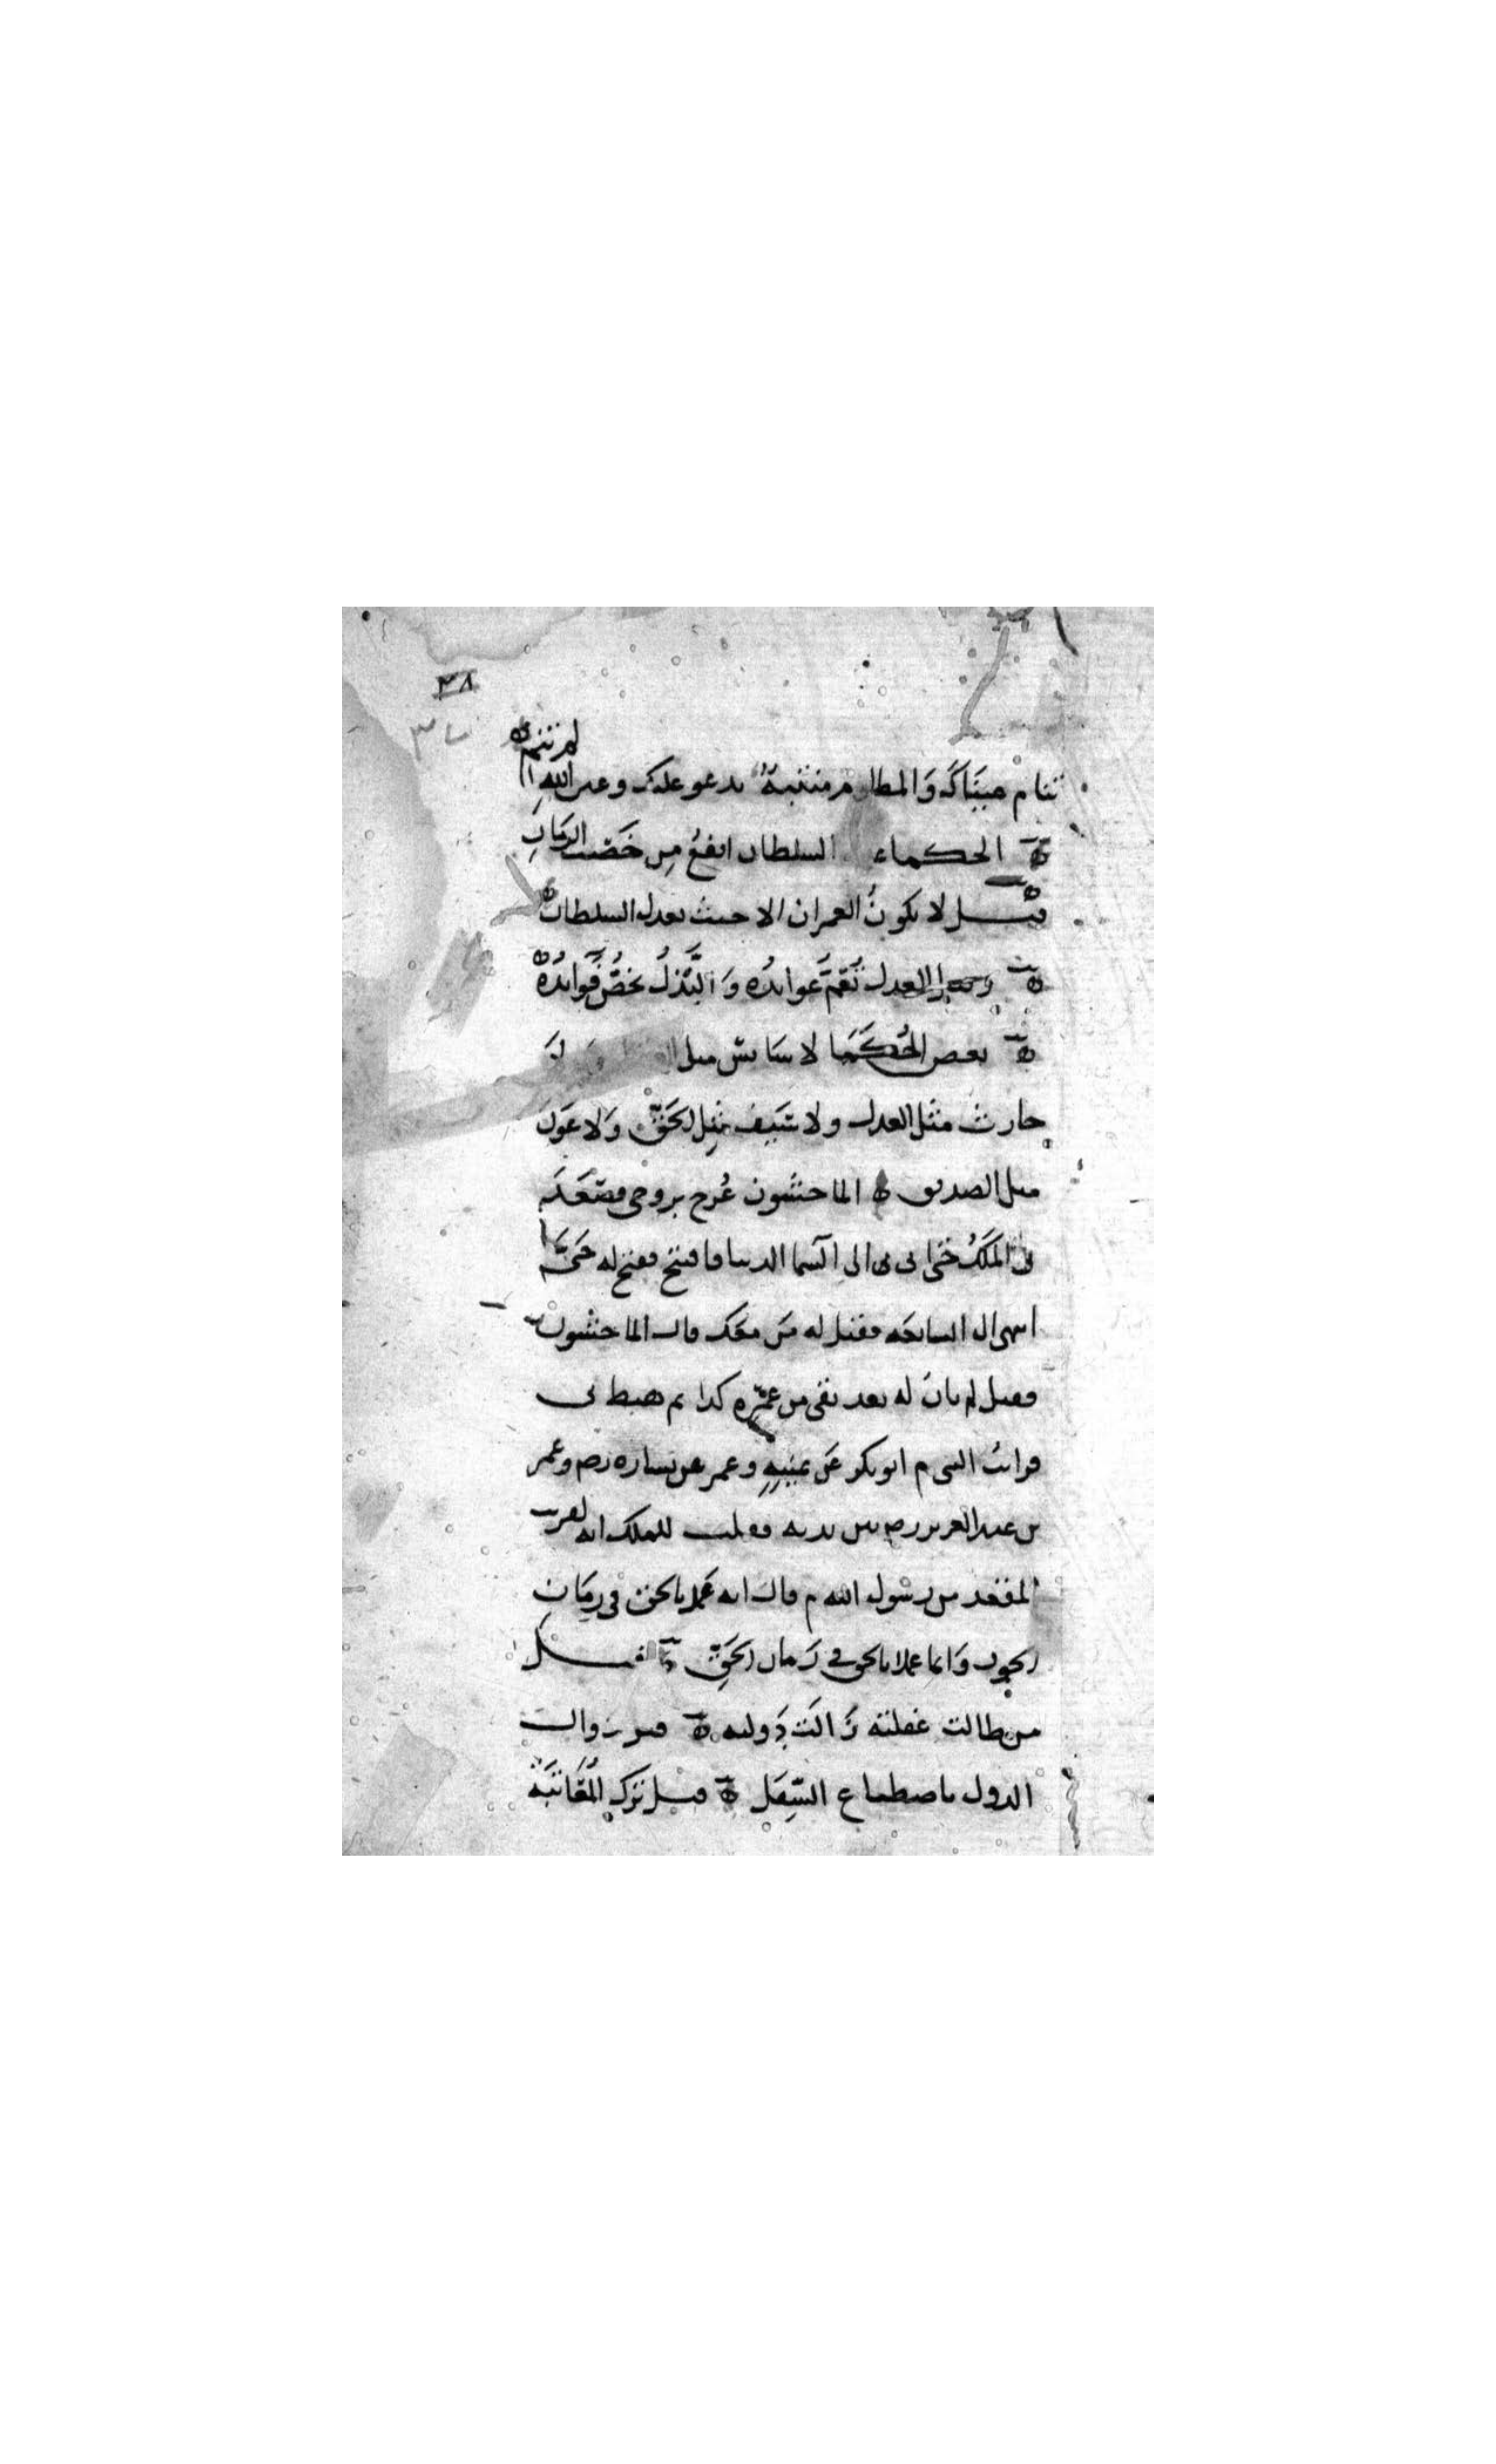 ٣٨
٣٧
لم تنم
تنام عيناك والمظلوم منتبه يدعو عليك وعين الله
الحكماء السلطان انفع من خصب الزمان
قيل لا يكون العمران الا حيث يعدل السلطان
العدل تعم عوائده والبذل يخص فوائده
بعض الحكما لا سايس مثل
حارث مثل العدل ولا سيف مثل الحق ولا عون
مثل الصدق الماجشون عُرج بروحي فصعد
بي الملك حتى اتى بي الى السما الدنيا فافتتح ففتح له حتى
انتهى الى السابعه فقيل له من معك قال الماجشون
فقيل لم يان له بعد بقى من عمره كذا ثم هبط بى
فرايت النبى م ابو بكر عن يمينه وعمر عن يساره رصم وعمر
بن عبد العزيز رصم بين يديه فقلت للملك انه لقريب
المقعد من رسول الله م قال انه عمل بالحق في زمان
الجور وانما عملا بالحق في زمان الحق قيل
من طالت غفلته زالت دولته قيل زوال
الدول باصطناع السفل قيل ترك المعاتبة